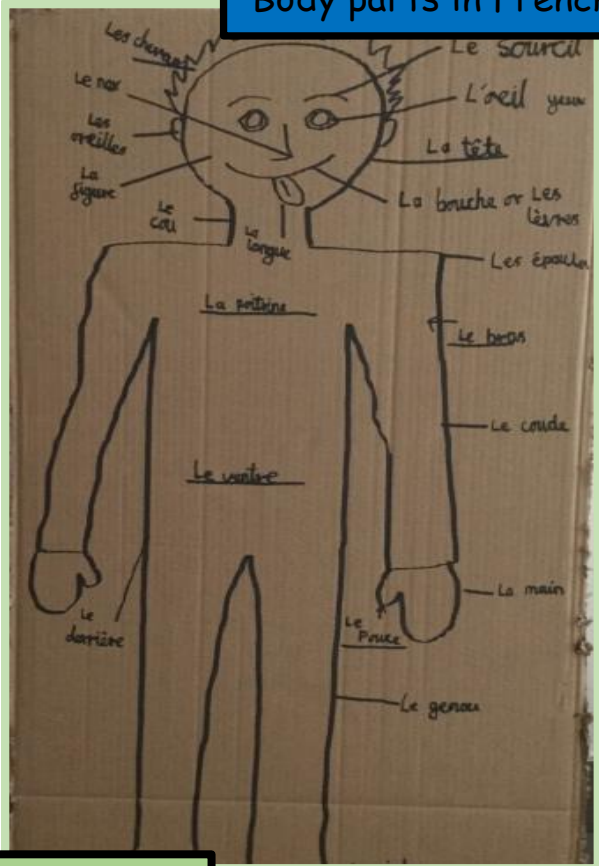 Body parts in French
Les cheveux
Le sourcil
Le nez
L'oeil yeux
Les
oreilles
La tête
La
figure
La bouche or Les
lèvres
Le
cou
La
langue
Les épaules
La poitrine
Le bras
Le coude
Le ventre
La main
Le
derrière
Le
Pouce
Le genou